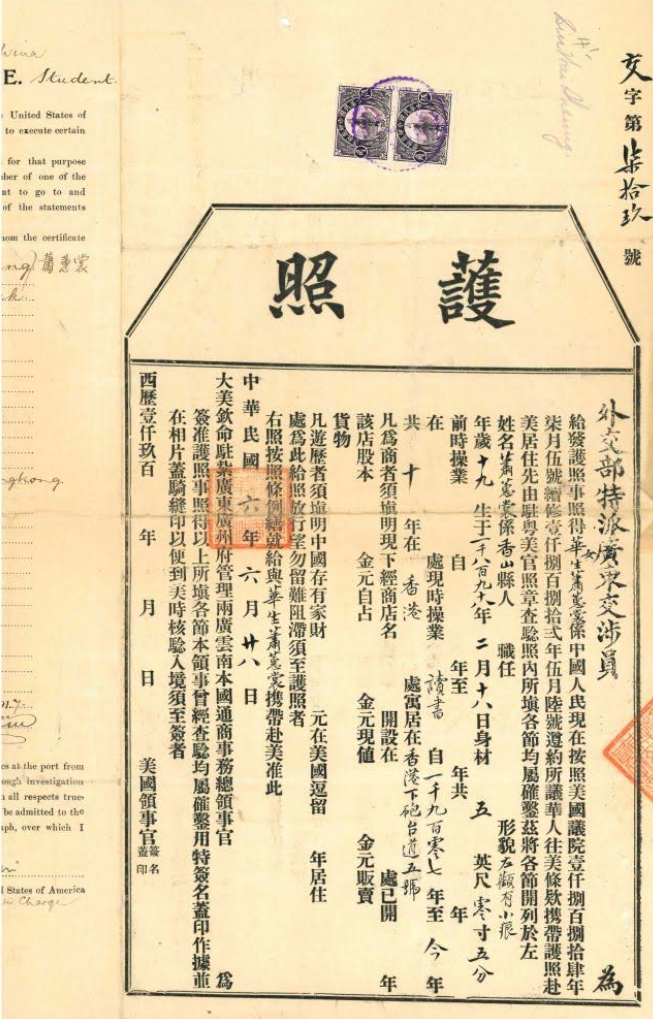 交字第柒拾玖號
護照
外交部特派廣東交涉員 為
給發護照事照得華女生蕭蕙裳係中國人民現在按照美國議院壹仟捌百捌拾肆年
柒月伍號續修壹仟捌百捌拾弍年伍月陸號遵約所議華人往美條欵携帶護照赴
美居住先由駐粤美官照章查騐照內所塡各節均屬確鑿茲將各節開列於左
姓名蕭蕙裳係香山縣人 職任 形貌左顴有小痕
年歲十九 生于一千八百九十八年 二月十八日身材 五 英尺零寸五分
前時操業 自 年至 年共 年
在 處現時操業 讀書 自一千九百零七年至今年
共十年在 香港 處寓居在香港下砲台道五號
凡為商者須塡明現下經商店名 開設在 處已開 年
該店股本 金元自占 金元現値 金元販賣
貨物
凡遊歷者須塡明中國存有家財 元在美國逗留 年居住
處為此給照放行望勿留難阻滯須至護照者
右照按照條例繕就給與華生蕭蕙裳携帶赴美准此
中華民國六年六月廿八日
大美欽命駐紮廣東廣州府管理兩廣雲南本國通商事務總領事官 為
簽准護照事照得以上所塡各節本領事曾經查騐均屬確鑿用特簽名蓋印作據並
在相片蓋騎縫印以便到美時核騐入境須至簽者
西歷壹仟玖百 年 月 日 美國領事官簽名蓋印
China
E. Student
United States of
to execute certain
for that purpose
ber of one of the
nt to go to and
of the statements
hom the certificate
ng) 蕭蕙裳
ngkong.
es at the port from
ough investigation
n all respects true
be admitted to the
aph, over which I
l States of America
in Charge